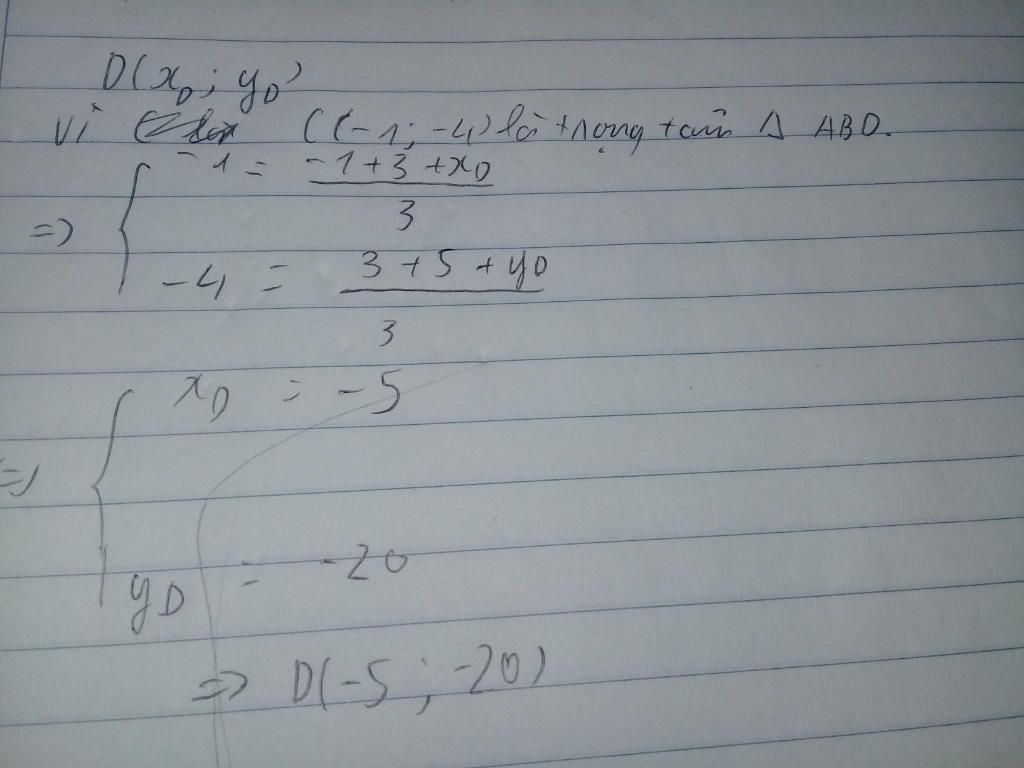 D(x_D; y_D)
Vì C(-1; -4) là trọng tâm Δ ABD.
-1 = -1+3+x_D
3
=> {
-4 = 3+5+y_D
3
x_D = -5
=> {
y_D = -20
=> D(-5; -20)